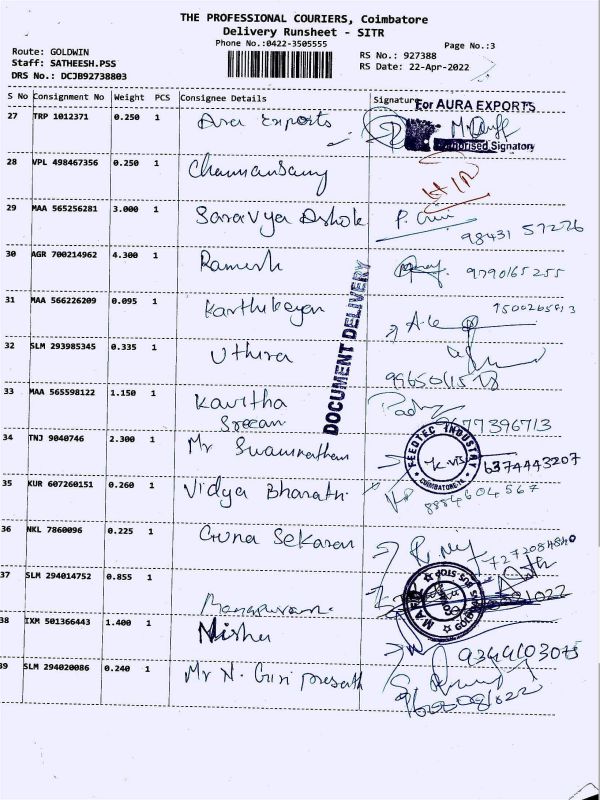 THE PROFESSIONAL COURIERS, Coimbatore
Delivery Runsheet - SITR
Phone No.:0422-3505555
Page No.:3
Route: GOLDWIN
Staff: SATHEESH.PSS
DRS No.: DCJB92738803
RS No.: 927388
RS Date: 22-Apr-2022
S No Consignment No Weight PCS Consignee Details Signature
For AURA EXPORTS
27 TRP 1012371 0.250 1 Ara Exports
Authorised Signatory
28 VPL 498467356 0.250 1
29 MAA 565256281 3.000 1 Saravya Ashok
98431 57226
30 AGR 700214962 4.300 1 Ramesh 9790165255
31 MAA 566226209 0.095 1 Karthikeyan
DOCUMENT DELIVERY
32 SLM 293985345 0.335 1 Uthira
33 MAA 565598122 1.150 1 Kavitha
Sreeram
34 TNJ 9040746 2.300 1 Mr Swaminathan
FEEDTEC INDUSTRY
COIMBATORE
6374443207
35 KUR 607260151 0.260 1 Vidya Bharathi
8884604567
36 NKL 7860096 0.225 1 Guna Sekaran
37 SLM 294014752 0.855 1
38 IXM 501366443 1.400 1 Nisha
9344103075
39 SLM 294020086 0.240 1 Mr N. Guri prasath